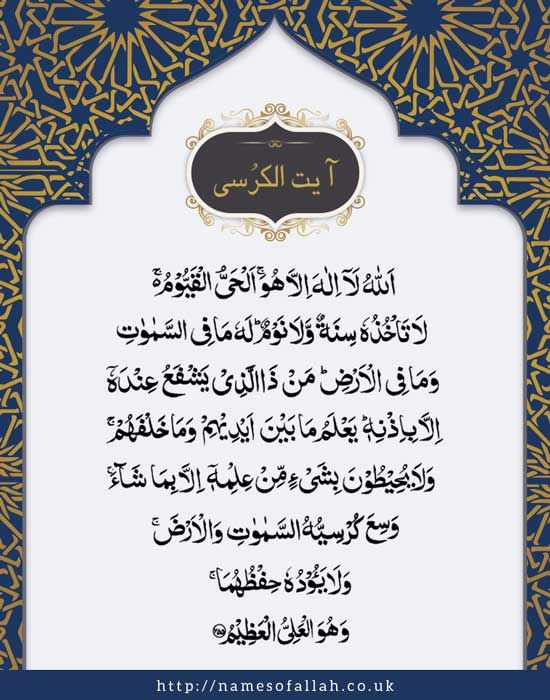 آیت الکرسی
اَللّٰهُ لَاۤ اِلٰهَ اِلَّا هُوَۚ اَلْحَیُّ الْقَیُّوْمُ ۬ۚ
لَا تَاْخُذُهٗ سِنَةٌ وَّلَا نَوْمٌؕ لَهٗ مَا فِی السَّمٰوٰتِ
وَمَا فِی الْاَرْضِؕ مَنْ ذَا الَّذِیْ یَشْفَعُ عِنْدَهٗۤ
اِلَّا بِاِذْنِهٖؕ یَعْلَمُ مَا بَیْنَ اَیْدِیْهِمْ وَمَا خَلْفَهُمْۚ
وَلَا یُحِیْطُوْنَ بِشَیْءٍ مِّنْ عِلْمِهٖۤ اِلَّا بِمَا شَآءَۚ
وَسِعَ كُرْسِیُّهُ السَّمٰوٰتِ وَالْاَرْضَۚ
وَلَا یَـُٔوْدُهٗ حِفْظُهُمَاۚ
وَهُوَ الْعَلِیُّ الْعَظِیْمُ ۝۲۵۵
http://namesofallah.co.uk